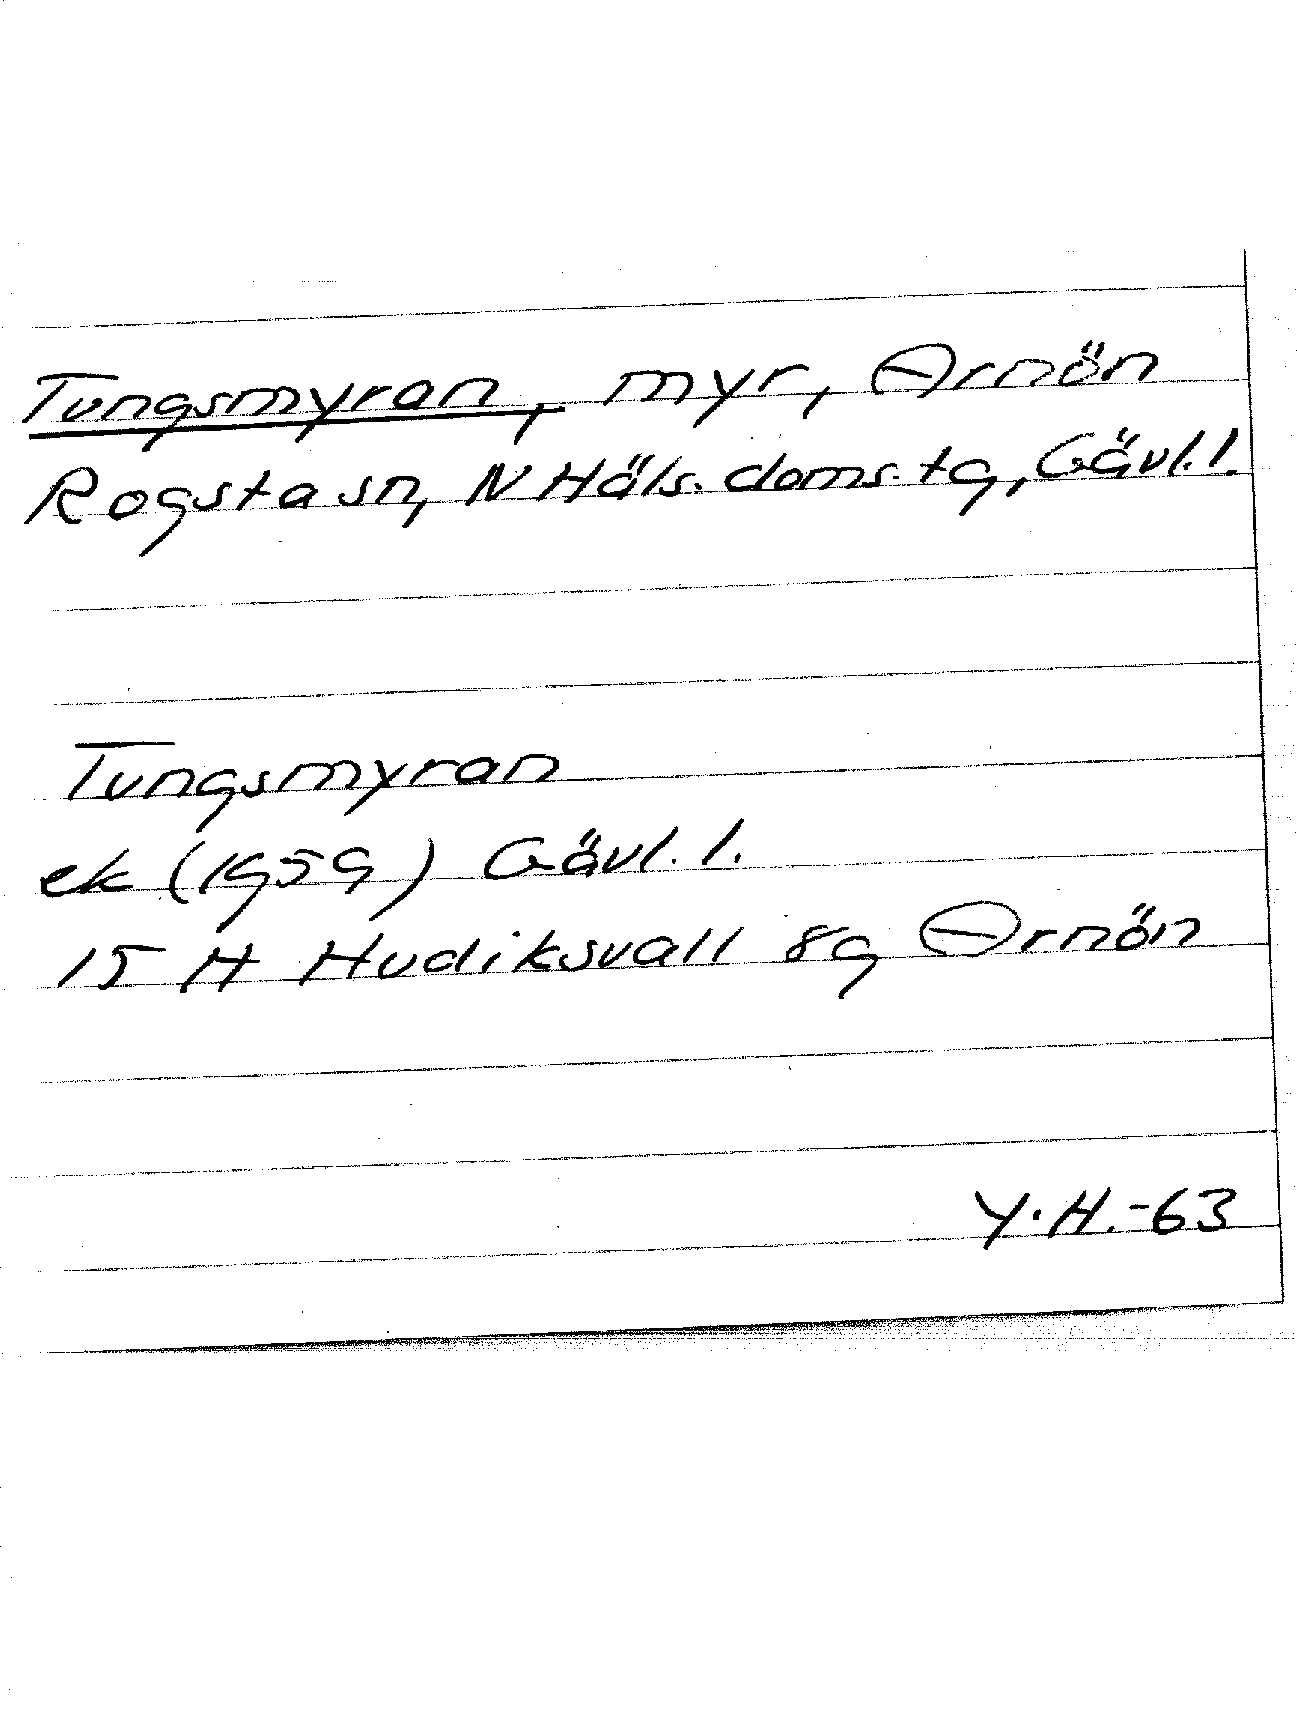 Tungsmyran, myr, Arnön
Rogsta sn, N Häls. doms. tg, Gävl. l.
Tungsmyran
ek (1959) Gävl. l.
15 H Hudiksvall 8g Arnön
Y.H.-63